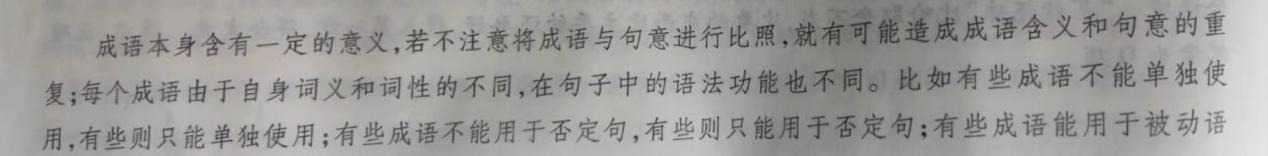 成语本身含有一定的意义,若不注意将成语与句意进行比照,就有可能造成成语含义和句意的重
复;每个成语由于自身词义和词性的不同,在句子中的语法功能也不同。比如有些成语不能单独使
用,有些则只能单独使用;有些成语不能用于否定句,有些则只能用于否定句;有些成语能用于被动语